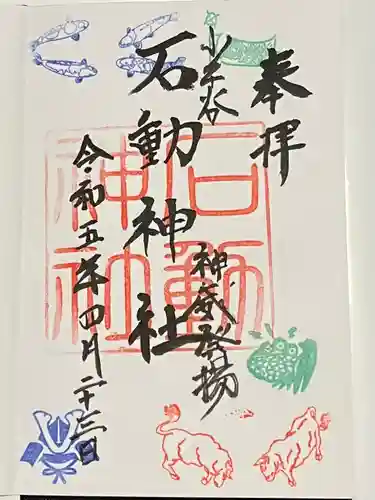 奉拝
小千谷
石動神社
神威発揚
令和五年四月二十三日
石動
神社